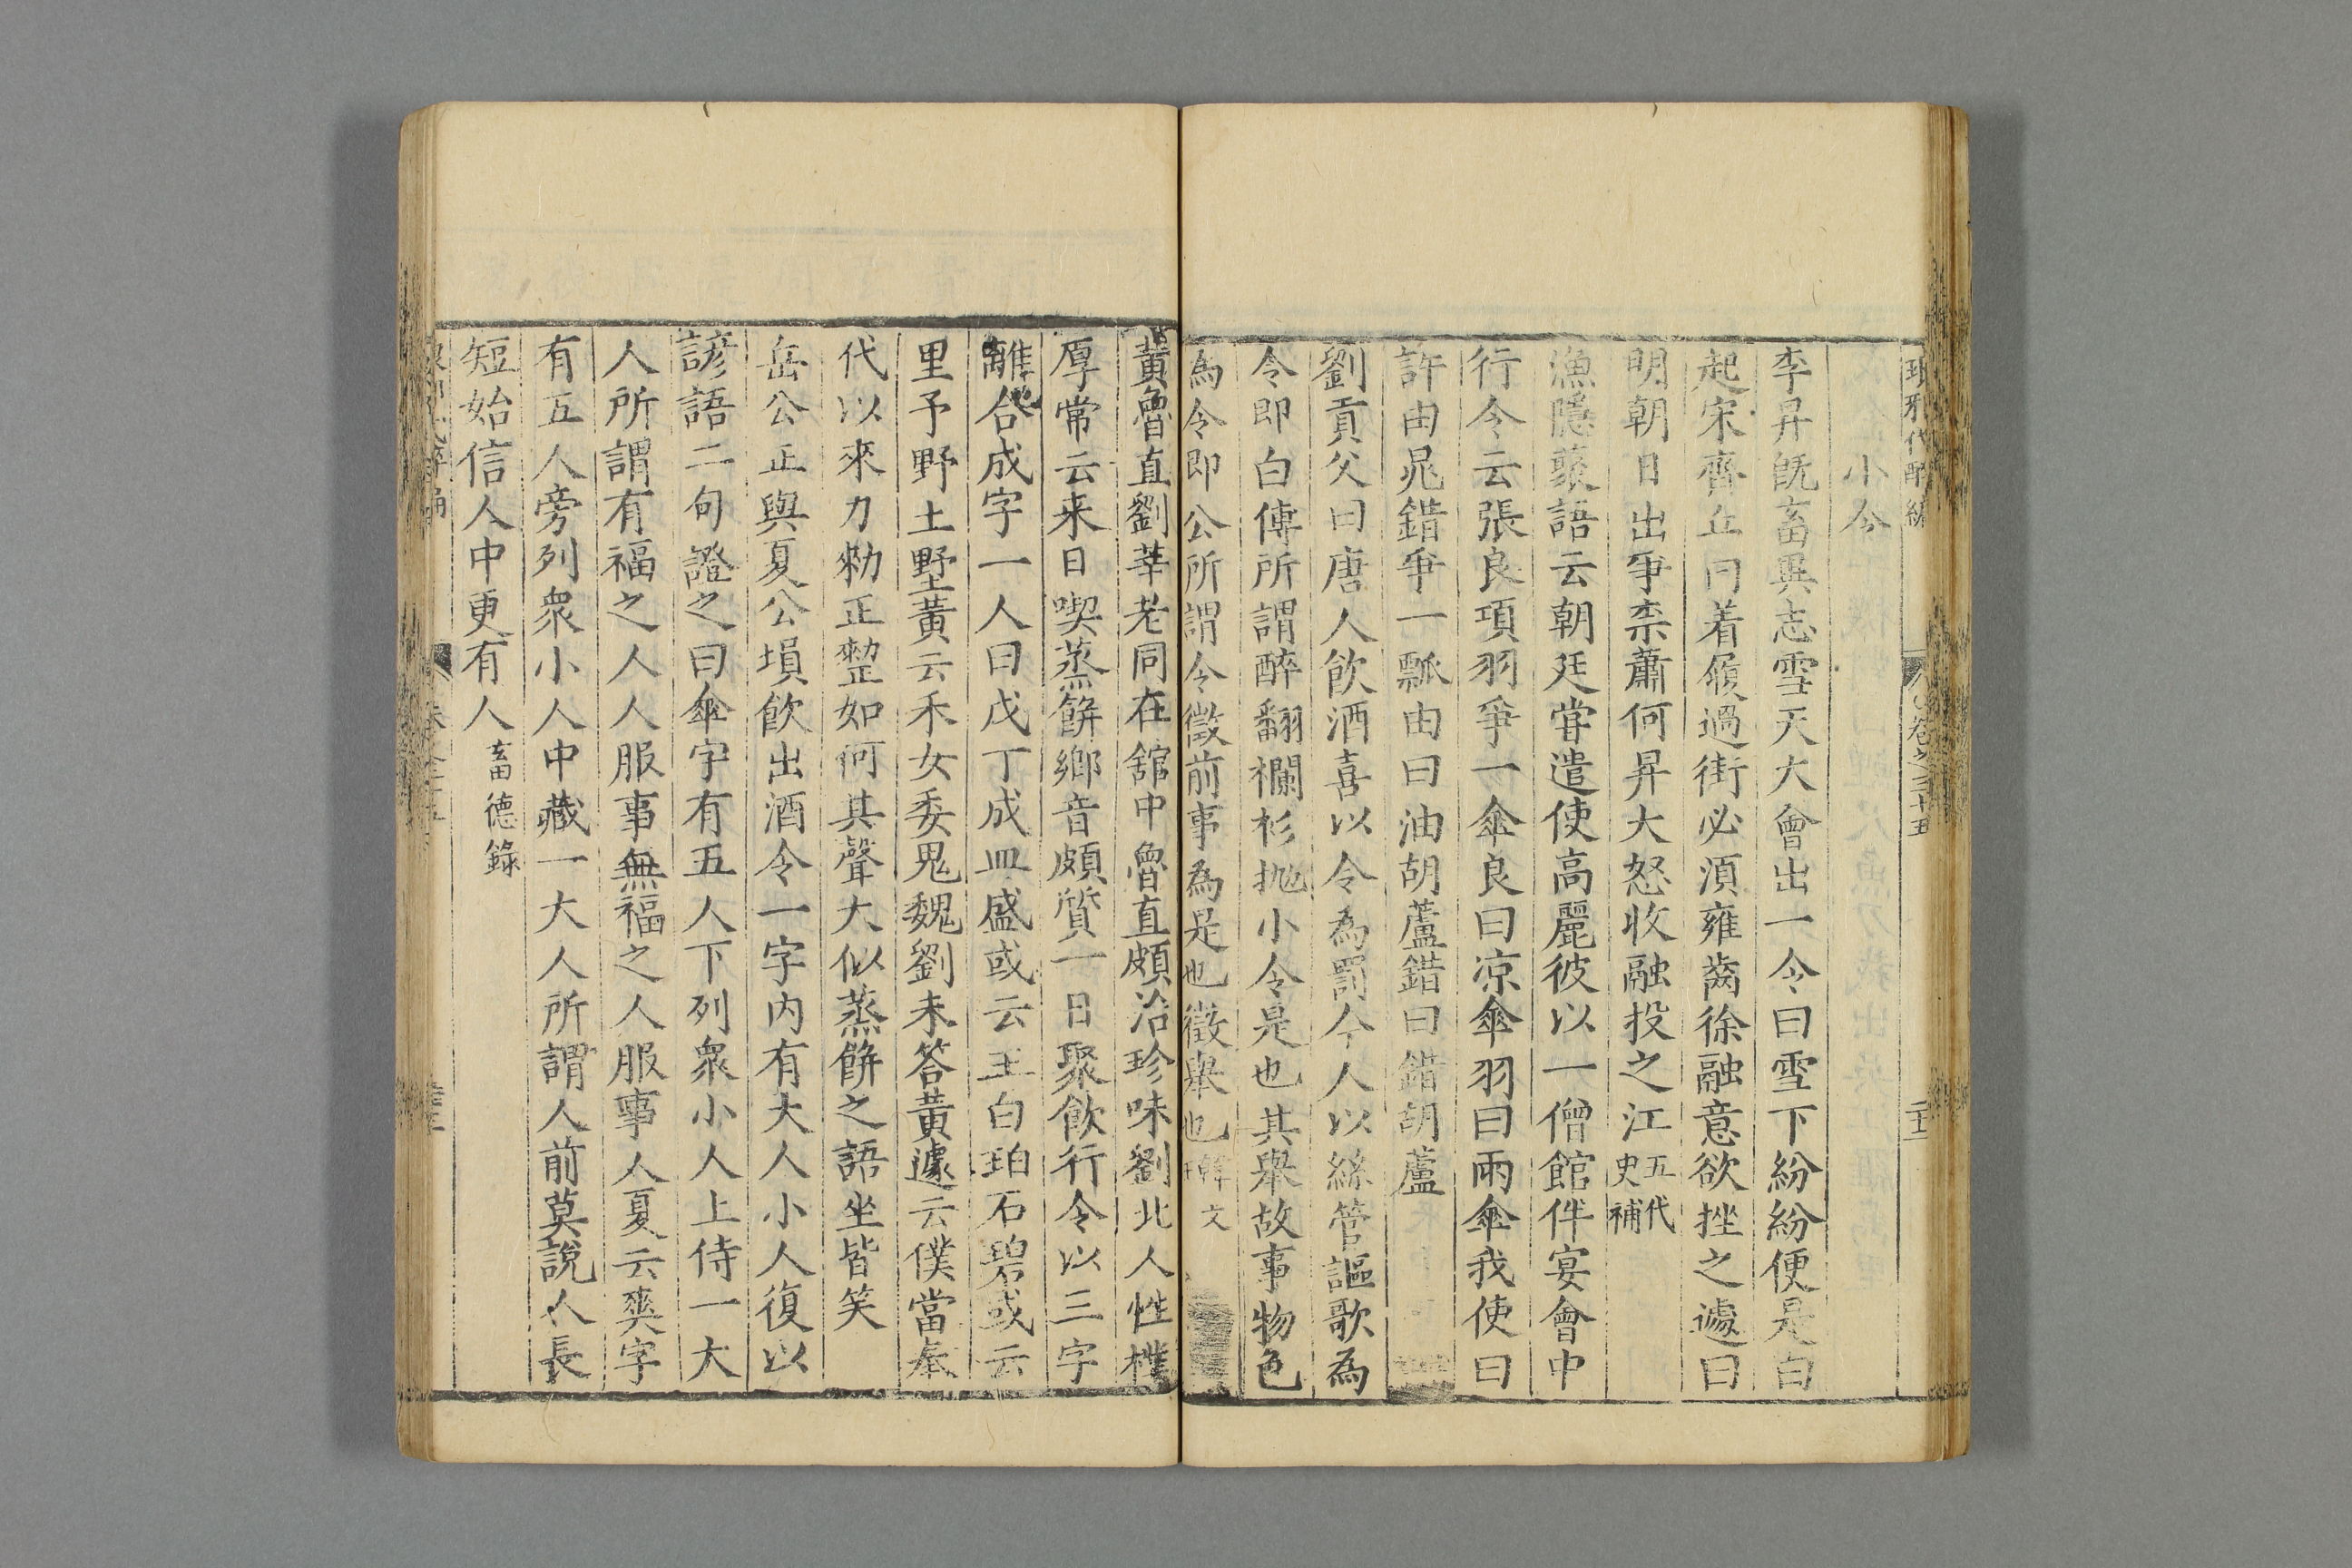 琅邪代醉編 卷之三十五
小令
李昇旣畜異志雪天大會出一令曰雪下紛紛便是白
起宋齊丘曰着屐過街必須雍齒徐融意欲挫之遽曰
明朝日出爭柰蕭何昇大怒收融投之江五代史補
漁隱叢語云朝廷甞遣使高麗彼以一僧館伴宴會中
行令云張良項羽爭一傘良曰凉傘羽曰雨傘我使曰
許由晁錯爭一瓢由曰油胡蘆錯曰錯胡蘆
劉貢父曰唐人飲酒喜以令為罰今人以絲管謳歌為
令即白傅所謂醉翻襴衫抛小令是也其舉故事物色
為令即公所謂令徵前事為是也徵舉也
黄魯直劉莘老同在舘中魯直頗洽珍味劉北人性樸
厚常云来日喫蒸餅鄉音頗質一日聚飲行令以三字
離合成字一人曰戊丁成皿盛或云王白珀石碧或云
里予野土墅黄云禾女委鬼魏劉未答黄遽云僕當奉
代以來力勑正整如何其聲大似蒸餅之語坐皆笑
岳公正與夏公塤飲出酒令一字内有大人小人復以
諺語二句證之曰傘字有五人下列衆小人上侍一大
人所謂有福之人人服事無福之人服事人夏云爽字
有五人旁列衆小人中藏一大人所謂人前莫說人長
短始信人中更有人畜德錄